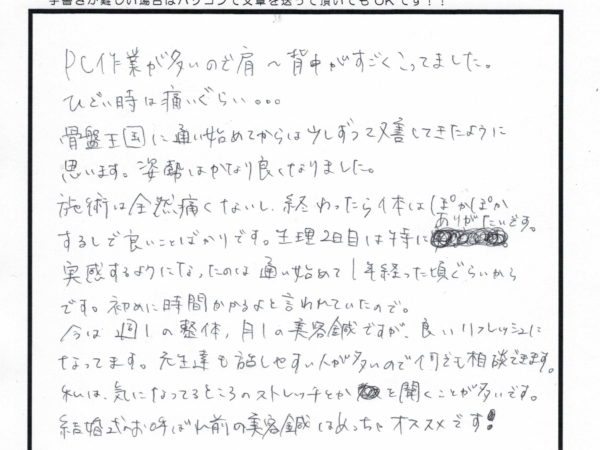 手書きが難しい場合はパソコンで文章を送って頂いてもOKです！！
PC作業が多いので肩〜背中がすごくこってました。
ひどい時は痛いぐらい...
骨盤王国に通い始めてからは少しずつ改善してきたように
思います。姿勢はかなり良くなりました。
施術は全然痛くないし、終わったら体はぽかぽか
するしで良いことばかりです。生理2日目は特にありがたいです。
実感するようになったのは通い始めて1年経った頃ぐらいから
です。初めに時間かかるよと言われていたので。
今は2週1の整体、月1の美容鍼ですが、良いリフレッシュに
なってます。先生達も話しやすい人が多いので何でも相談できます。
私は、気になってるところのストレッチとかを聞くことが多いです。
結婚式のお呼ばれ前の美容鍼はめっちゃオススメです!